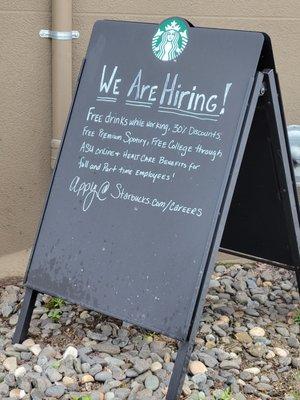 We Are Hiring!
Free drinks while working, 30% Discounts,
Free Premium Spotify, Free College through
ASU online & Health Care Benefits for
full and Part time employees!
Apply @ Starbucks.com/careers